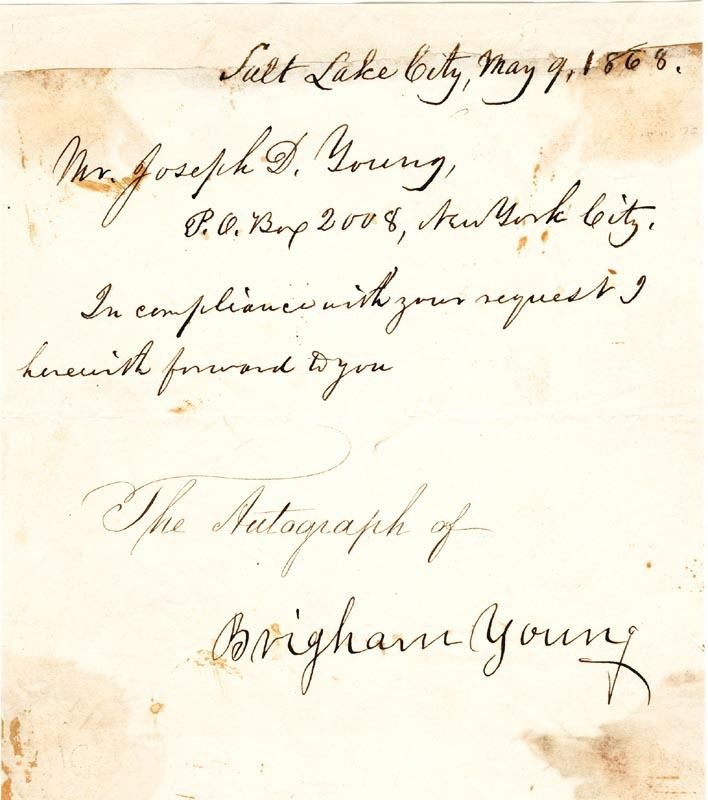 Salt Lake City, May 9, 1868.
Mr. Joseph D. Young,
P.O. Box 2008, New York City.
In compliance with your request I
herewith forward to you
The Autograph of
Brigham Young